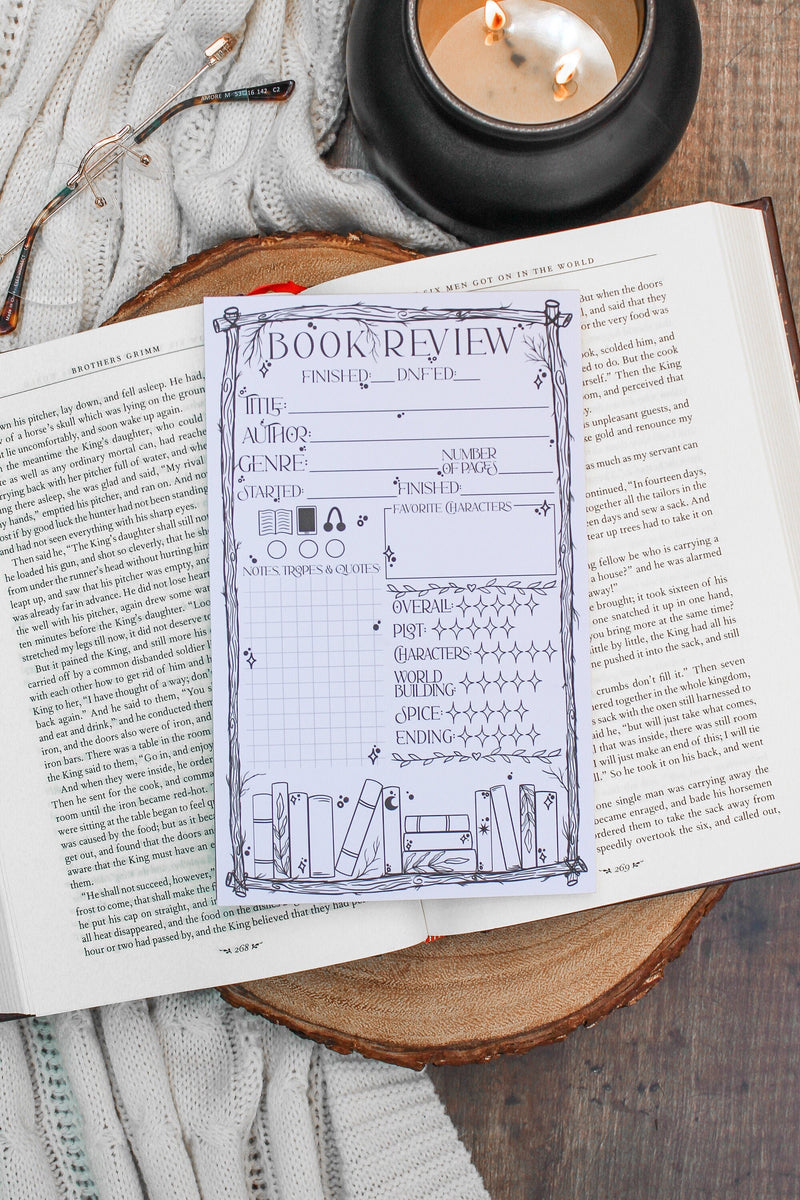 AMORE M 53□16.142 C2
BOOK REVIEW
FINISHED:__ DNF'ED__
TITLE:
AUTHOR:
GENRE:
NUMBER OF PAGES
STARTED:
FINISHED:
FAVORITE CHARACTERS
NOTES, TROPES & QUOTES
OVERALL:
PLOT:
CHARACTERS:
WORLD BUILDING:
SPICE:
ENDING:
BROTHERS GRIMM
wn his pitcher, lay down, and fell asleep. He had,
y of a horse's skull which was lying on the groun
ht lie uncomfortably, and soon wake up again.
n the meantime the King's daughter, who could
e as well as any ordinary mortal can, had reache
rrying back with her pitcher full of water, and whe
ng there asleep, she was glad and said, "My rival
y hands," emptied his pitcher, and ran on. And no
ost if by good luck the hunter had not been standing
and had not seen everything with his sharp eyes.
Then said he, "The King's daughter shall still no
he loaded his gun, and shot so cleverly, that he sh
from under the runner's head without hurting him
leapt up, and saw that his pitcher was empty, and
was already far in advance. He did not lose heart
the well with his pitcher, again drew some wa
ten minutes before the King's daughter. "Loo
stretched my legs till now, it did not deserve to
But it pained the King, and still more his
carried off by a common disbanded soldier l
with each other how to get rid of him and h
King to her, "I have thought of a way; don'
back again." And he said to them, "You s
and eat and drink," and he conducted them
iron, and the doors also were of iron, and
iron bars. There was a table in the room
the King said to them, "Go in, and enjoy
And when they were inside, he order
Then he sent for the cook, and comma
room until the iron became red-hot.
were sitting at the table began to feel q
was caused by the food; but as it bec
get out, and found that the doors and
aware that the King must have an e
them.
"He shall not succeed, however,"
frost to come, that shall make the f
he put his cap on straight, and i
all heat disappeared, and the food on the dishes
hour or two had passed by, and the King believed that they had per
268
SIX MEN GOT ON IN THE WORLD
But when the doors
, and said that they
or the very food was
ok, scolded him, and
d to do. But the cook
rself." Then the King
om, and perceived that
unpleasant guests, and
ke gold and renounce my
as much as my servant can
ontinued, "In fourteen days,
together all the tailors in the
en days and sew a sack. And
ear up trees had to take it on
ng fellow be who is carrying a
a house?" and he was alarmed
away!"
brought; it took sixteen of his
one snatched it up in one hand,
you bring more at the same time?
ttle by little, the King had all his
ne pushed it into the sack, and still
crumbs don't fill it." Then seven
hered together in the whole kingdom,
sack with the oxen still harnessed to
id he, "but will just take what comes,
that was inside, there was still room
will just make an end of this; I will tie
l." So he took it on his back, and went
one single man was carrying away the
became enraged, and bade his horsemen
ordered them to take the sack away from
speedily overtook the six, and called out,
269